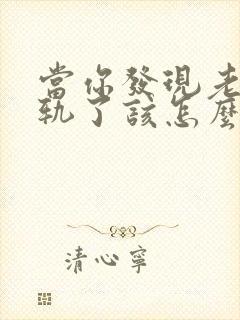 當你發現老
軌了該怎麼
清心寧